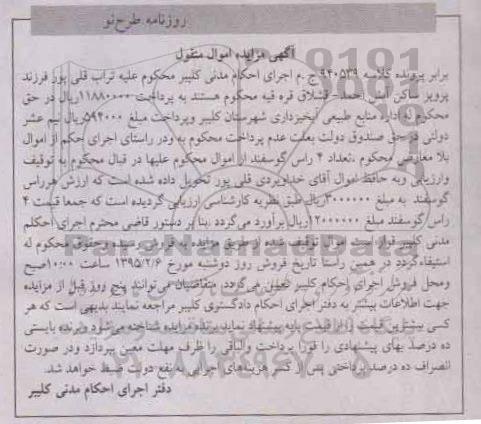 روزنامه طرح نو
آگهی مزایده اموال منقول
برابر پرونده کلاسه ۹۴۰۵۳۹ ج.م اجرای احکام مدنی کلیبر محکوم علیه تراب قلی پور فرزند
پرویز ساکن آلش احمد - قشلاق قره قیه محکوم هستند به پرداخت ۱۱۸۸۰۰۰۰ ریال در حق
محکوم له اداره منابع طبیعی آبخیزداری شهرستان کلیبر وپرداخت مبلغ ۵۹۴۰۰۰ ریال نیم عشر
دولتی در حق صندوق دولت بعلت عدم پرداخت محکوم به ودر راستای اجرای حکم از اموال
بلا معارض محکوم ،تعداد ۴ راس گوسفند از اموال محکوم علیها در قبال محکوم به توقیف
وارزیابی وبه حافظ اموال آقای خداویردی قلی پور تحویل داده شده است که ارزش هرراس
گوسفند به مبلغ ۳۰۰۰۰۰۰ ریال طبق نظریه کارشناسی ارزیابی گردیده است که جمعا قیمت ۴
راس گوسفند مبلغ ۱۲۰۰۰۰۰۰ ریال برآورد می گردد .بنا بر دستور قاضی محترم اجرای احکلم
مدنی کلیبر قرار است اموال توقیف شده از طریق مزایده به فروش رسیده وحقوق محکوم له
استیفاگردد در همین راستا تاریخ فروش روز دوشنبه مورخ ۱۳۹۵/۲/۶ ساعت ۱۰:۰۰ صبح
ومحل فروش اجرای احکام کلیبر تعیین می گردد. متقاضیان می توانند پنج روز قبل از مزایده
جهت اطلاعات بیشتر به دفتر اجرای احکام دادگستری کلیبر مراجعه نمایند بدیهی است که هر
کسی بیشترین قیمت را از قیمت پایه پیشنهاد نماید برنده مزایده شناخته می شود وبرنده بایستی
ده درصد بهای پیشنهادی را فورا پرداخت والباقی را ظرف مهلت معین بپردازد ودر صورت
انصراف ده درصد پرداختی پس از کسر هزینه های اجرایی به نفع دولت ضبط خواهد شد.
دفتر اجرای احکام مدنی کلیبر
ParsNamadData